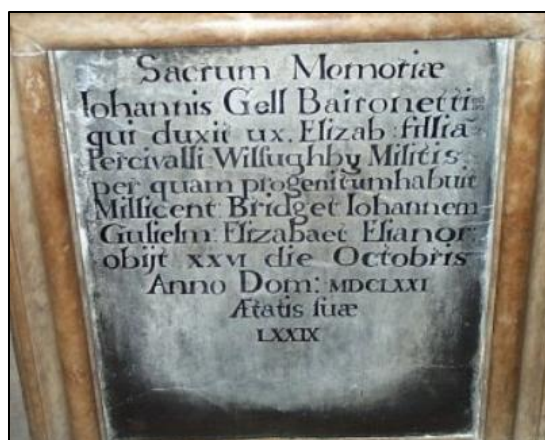 Sacrum Memoriæ
Iohannis Gell Baironetti
qui duxit ux. Elizab: fillia~
Percivalli: Willughby Militis
per quam progenitumhabuit
Millicent: Bridget Iohannem
Gulielm: Elizabaet Elianor:
obijt XXVI die Octobris
Anno Dom: MDCLXXI
Ætatis suæ
LXXIX